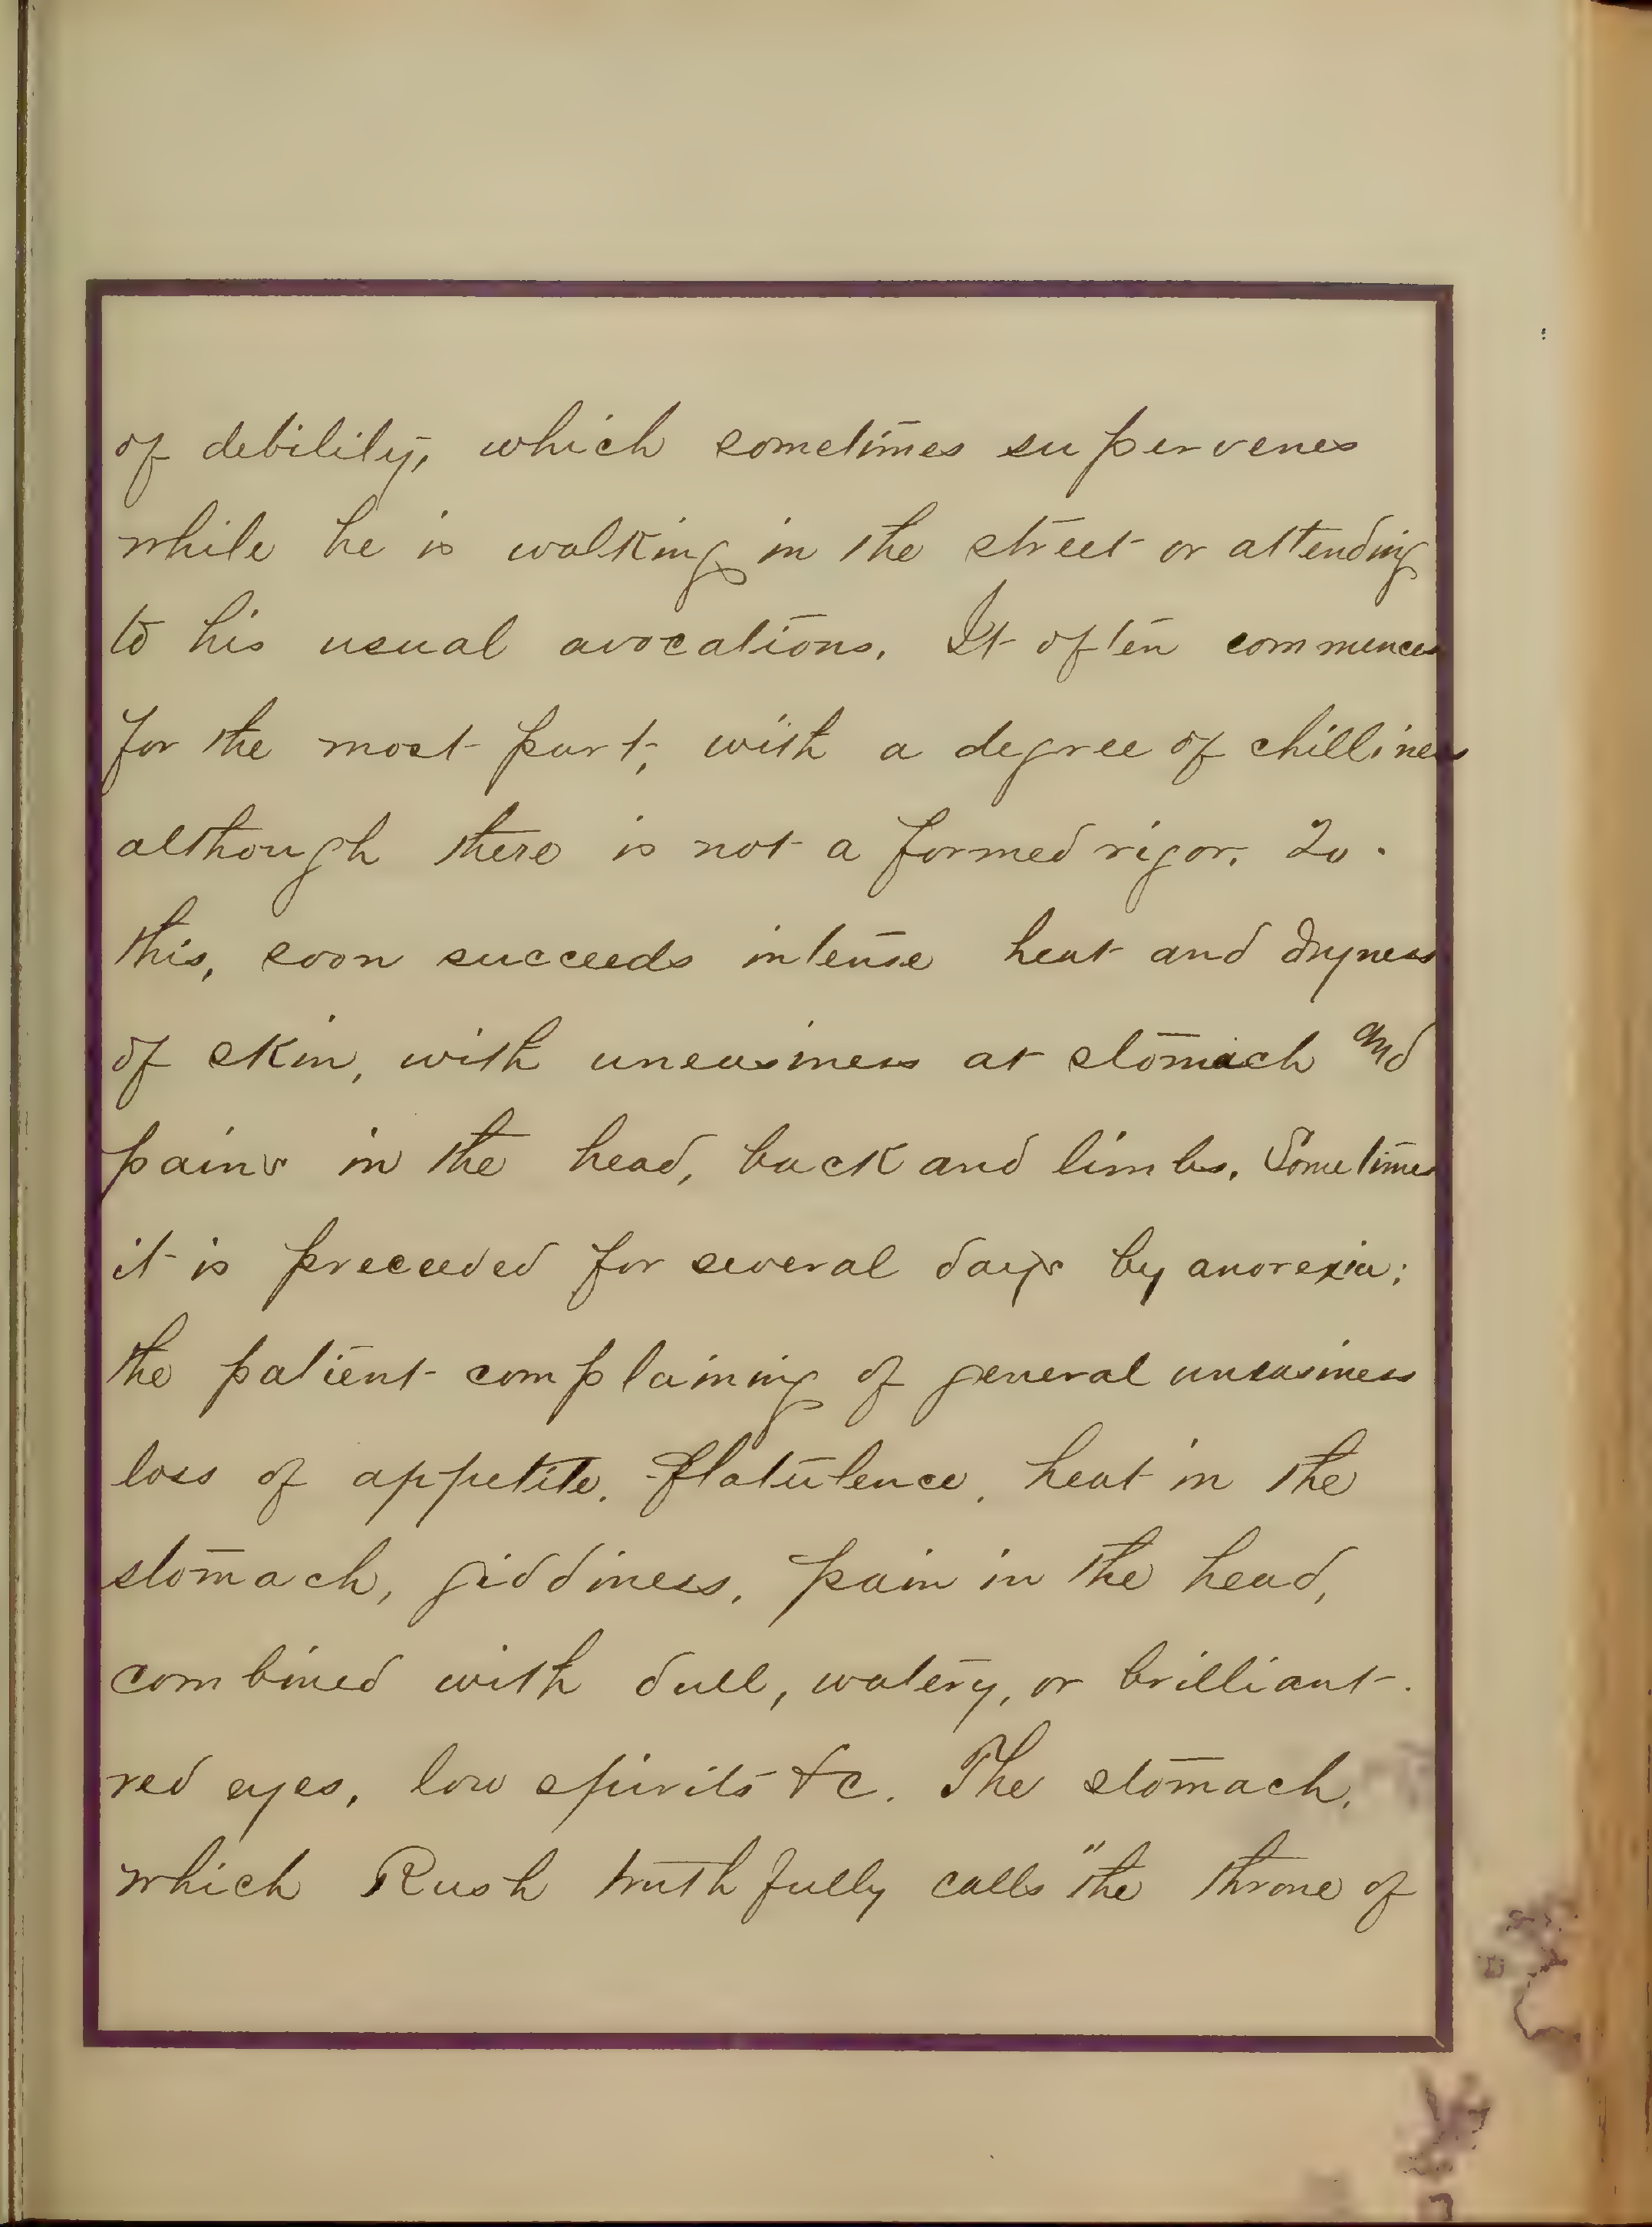 of debility, which sometimes supervenes
while he is walking in the street or attending
to his usual avocations. It often commences
for the most part, with a degree of chilliness
although there is not a formed rigor. To
this, soon succeeds intense heat and dryness
of skin, with uneasiness at stomach and
pains in the head, back and limbs. Sometimes
it is preceeded for several days by anorexia;
the patient complaining of general uneasiness
loss of appetite. flatulence, heat in the
stomach, giddiness, pain in the head,
combined with dull, watery, or brilliant.
red eyes, low spirits &c. The stomach,
which Rush truthfully calls "the throne of